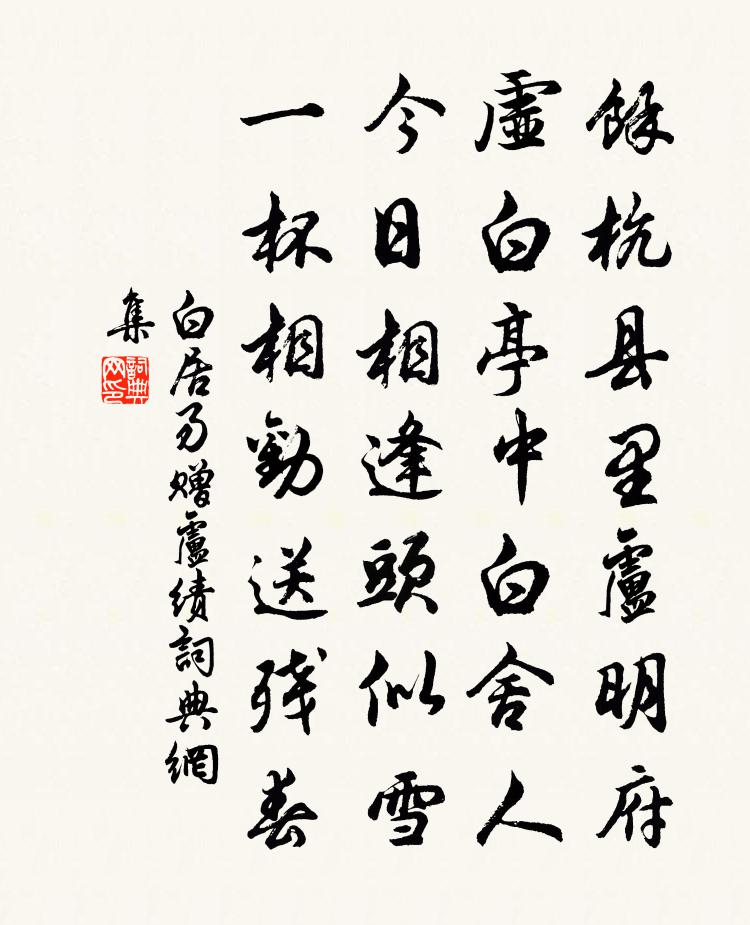 餘杭县里盧明府
虛白亭中白舍人
今日相逢頭似雪
一杯相勸送残春
白居易贈盧績詞典網
集
詞典
网印